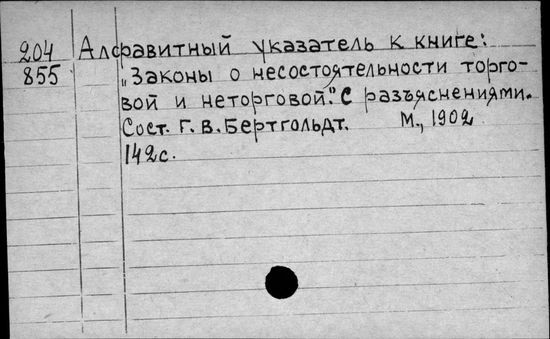 204 Алфавитный указатель к книге:
855 "Законы о несостоятельности торго-
вой и неторговой." С разъяснениями.
Сост. Г.В.Бертгольдт. М., 1902
142 с.